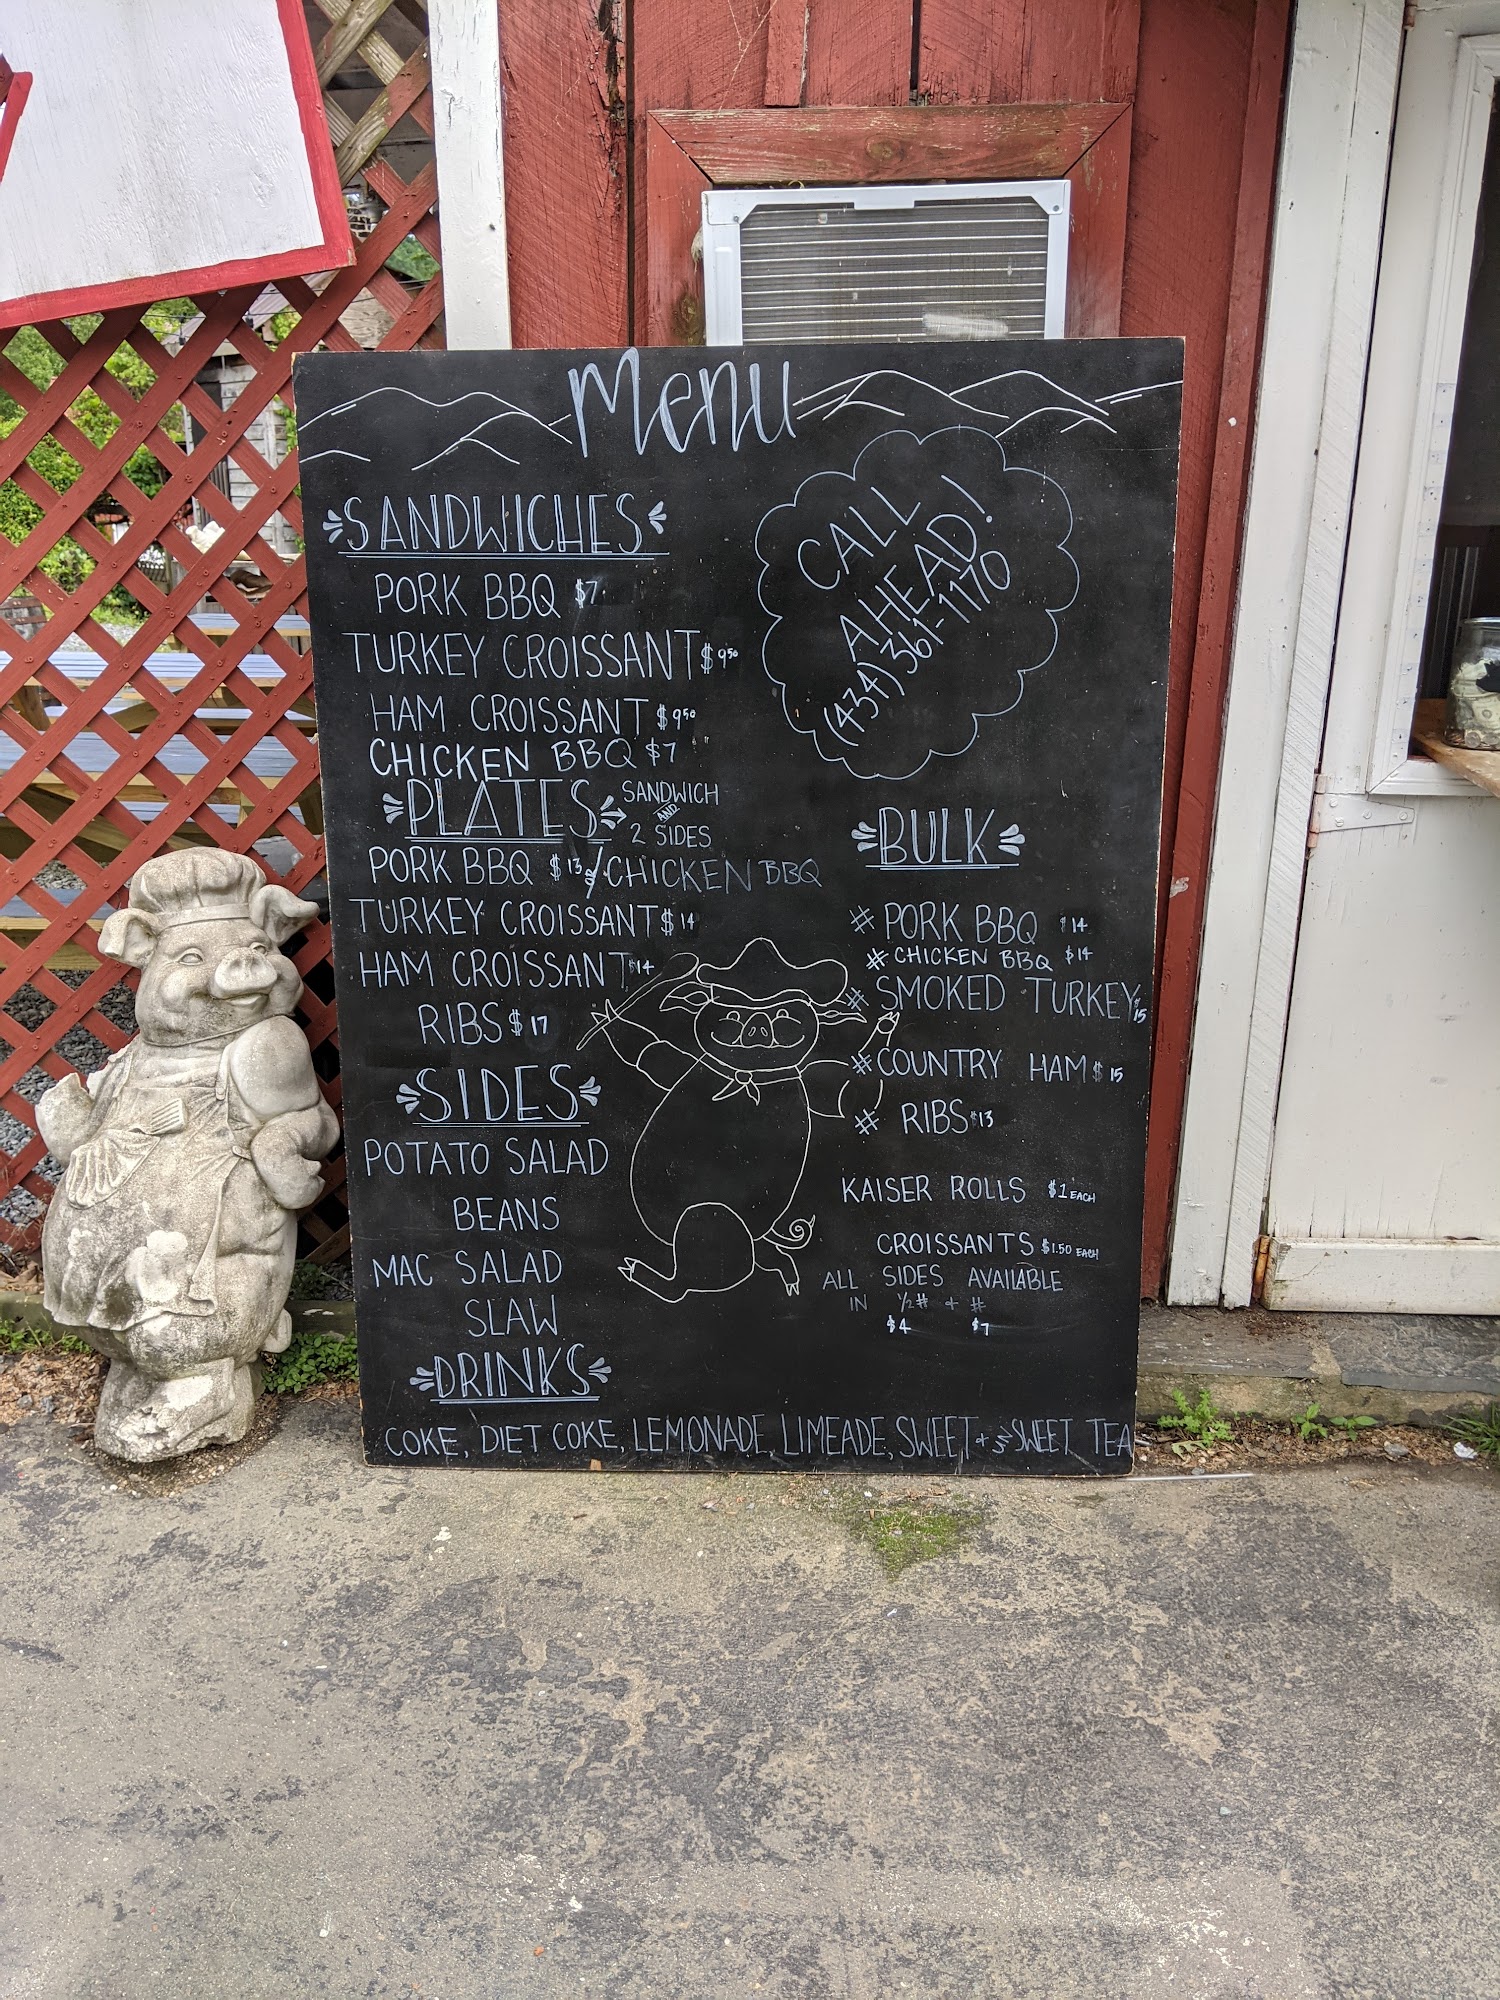 Menu
SANDWICHES
PORK BBQ $7
TURKEY CROISSANT $9.50
HAM CROISSANT $9.50
CHICKEN BBQ $7
CALL
AHEAD!
(434) 361-1170
PLATES SANDWICH
AND
2 SIDES
PORK BBQ $13 OR CHICKEN BBQ
TURKEY CROISSANT $14
HAM CROISSANT $14
RIBS $17
SIDES
POTATO SALAD
BEANS
MAC SALAD
SLAW
BULK
# PORK BBQ $14
# CHICKEN BBQ $14
# SMOKED TURKEY $15
# COUNTRY HAM $15
# RIBS $13
KAISER ROLLS $1 EACH
CROISSANTS $1.50 EACH
ALL SIDES AVAILABLE
IN ½# + #
$4 $7
DRINKS
COKE, DIET COKE, LEMONADE, LIMEADE, SWEET + UNSWEET TEA